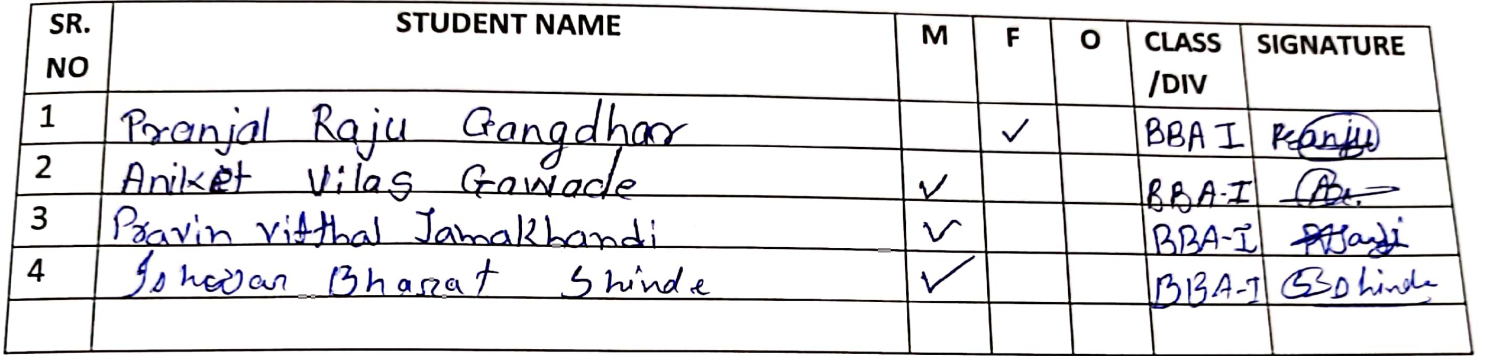 SR. NO STUDENT NAME M F O CLASS /DIV SIGNATURE
1 Pranjal Raju Gangdhar ✓ BBA I
2 Aniket Vilas Gawade ✓ BBA-I
3 Pravin vitthal Jamakhandi ✓ BBA-I
4 Bharat Shinde ✓ BBA-I